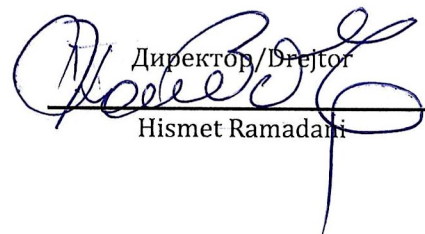 Директор/Drejtor
Hismet Ramadani